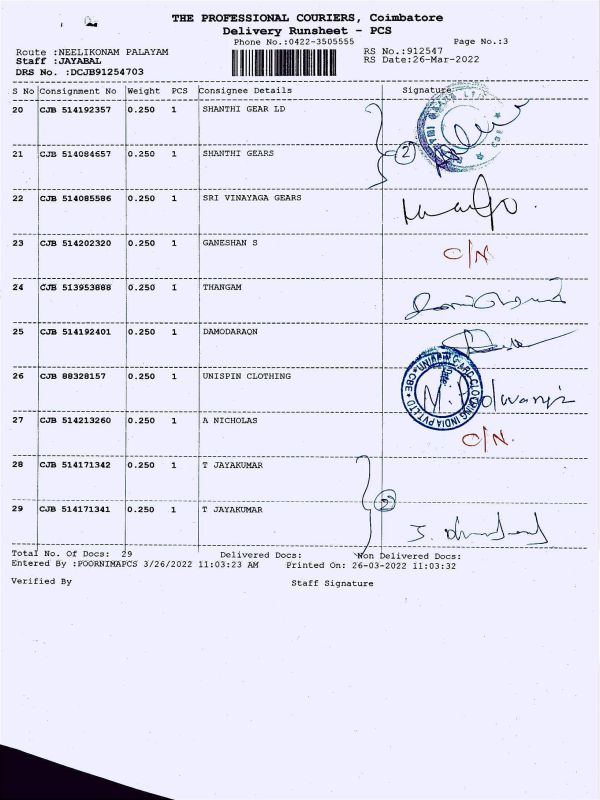 THE PROFESSIONAL COURIERS, Coimbatore
Delivery Runsheet - PCS
Phone No.:0422-3505555 Page No.:3
Route :NEELIKONAM PALAYAM RS No.:912547
Staff :JAYABAL RS Date:26-Mar-2022
DRS No. :DCJB91254703
S No Consignment No Weight PCS Consignee Details Signature
20 CJB 514192357 0.250 1 SHANTHI GEAR LD
21 CJB 514084657 0.250 1 SHANTHI GEARS 2
22 CJB 514085586 0.250 1 SRI VINAYAGA GEARS
23 CJB 514202320 0.250 1 GANESHAN S O/N
24 CJB 513953888 0.250 1 THANGAM
25 CJB 514192401 0.250 1 DAMODARAQN
26 CJB 88328157 0.250 1 UNISPIN CLOTHING
27 CJB 514213260 0.250 1 A NICHOLAS O/N.
28 CJB 514171342 0.250 1 T JAYAKUMAR
29 CJB 514171341 0.250 1 T JAYAKUMAR 2
Total No. Of Docs: 29 Delivered Docs: Non Delivered Docs:
Entered By :POORNIMAPCS 3/26/2022 11:03:23 AM Printed On: 26-03-2022 11:03:32
Verified By Staff Signature